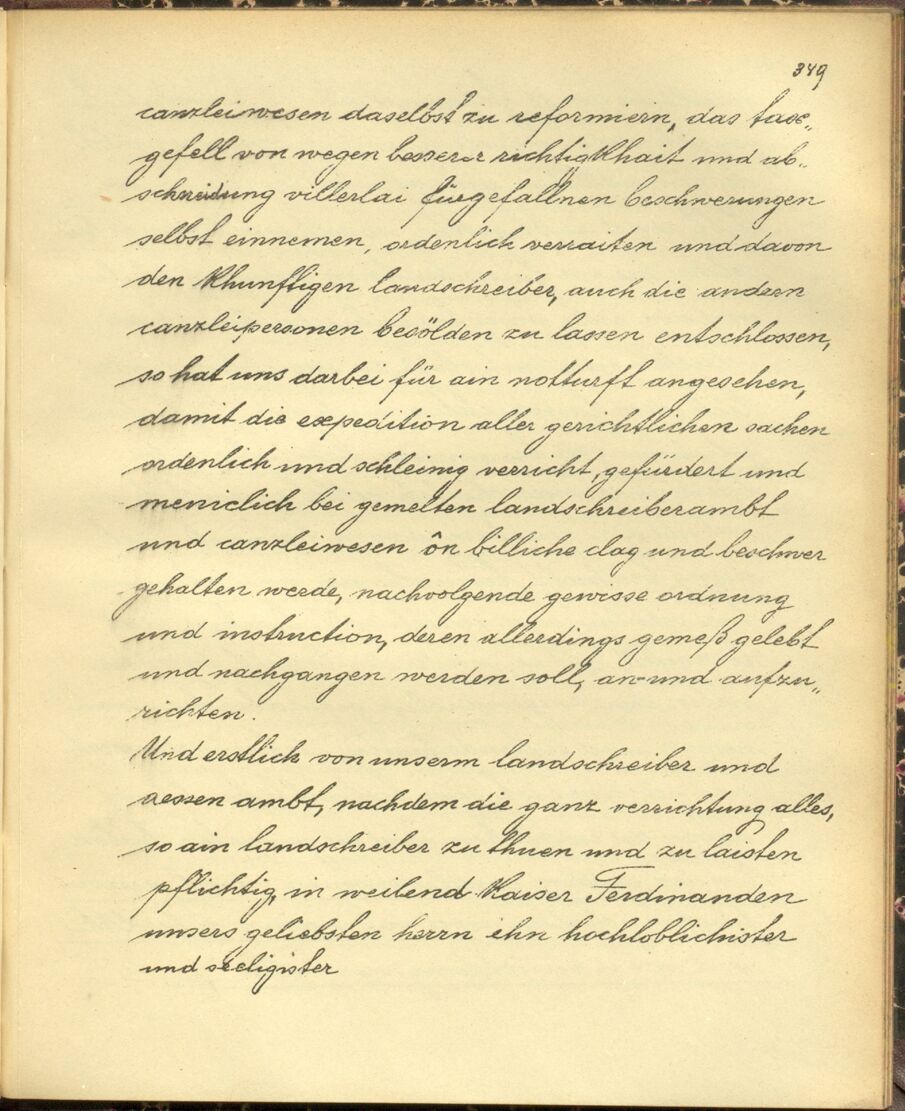 349
canzleiwesen daselbst zu reformiern, das tax„
gefell von wegen besserer richtigkhait und ab„
schneidung villerlai fürgefallnen beschwerungen
selbst einnemen, ordenlich verraiten und davon
den khunfftigen landschreiber, auch die andern
canzleipersonen besölden zu lassen entschlossen,
so hat uns darbei für ain notturft angesehen,
damit die expedition aller gerichtlichen sachen
ordenlich und schleinig verricht, gefürdert und
meniclich bei gemelten landschreiberambt
und canzleiwesen ôn billiche clag und beschwer
gehalten werde, nachvolgende gewisse ordnung
und instruction, deren allerdings gemeß gelebt
und nachgangen werden soll, an-und aufzu„
richten.
Und erstlich von unserm landschreiber und
dessen ambt, nachdem die ganz verrichtung alles,
so ain landschreiber zu thuen und zu laisten
pflichtig, in weilend Kaiser Ferdinanden
unsers geliebsten herrn ehn hochloblichister
und seeligister